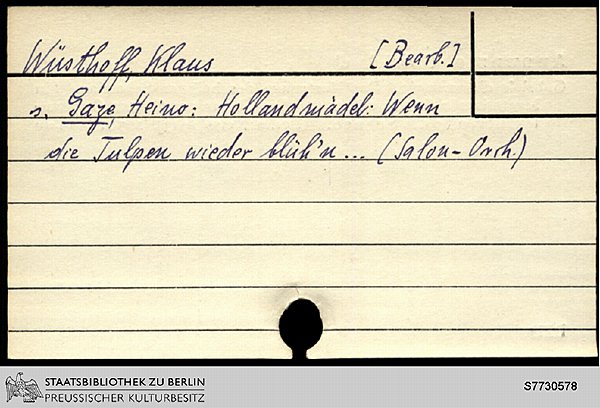 Wüsthoff, Klaus [Bearb.]
s. Gaze, Heino: Hollandmädel: Wenn
die Tulpen wieder blüh'n ... (Salon-Orch.)
STAATSBIBLIOTHEK ZU BERLIN
PREUSSISCHER KULTURBESITZ
S7730578